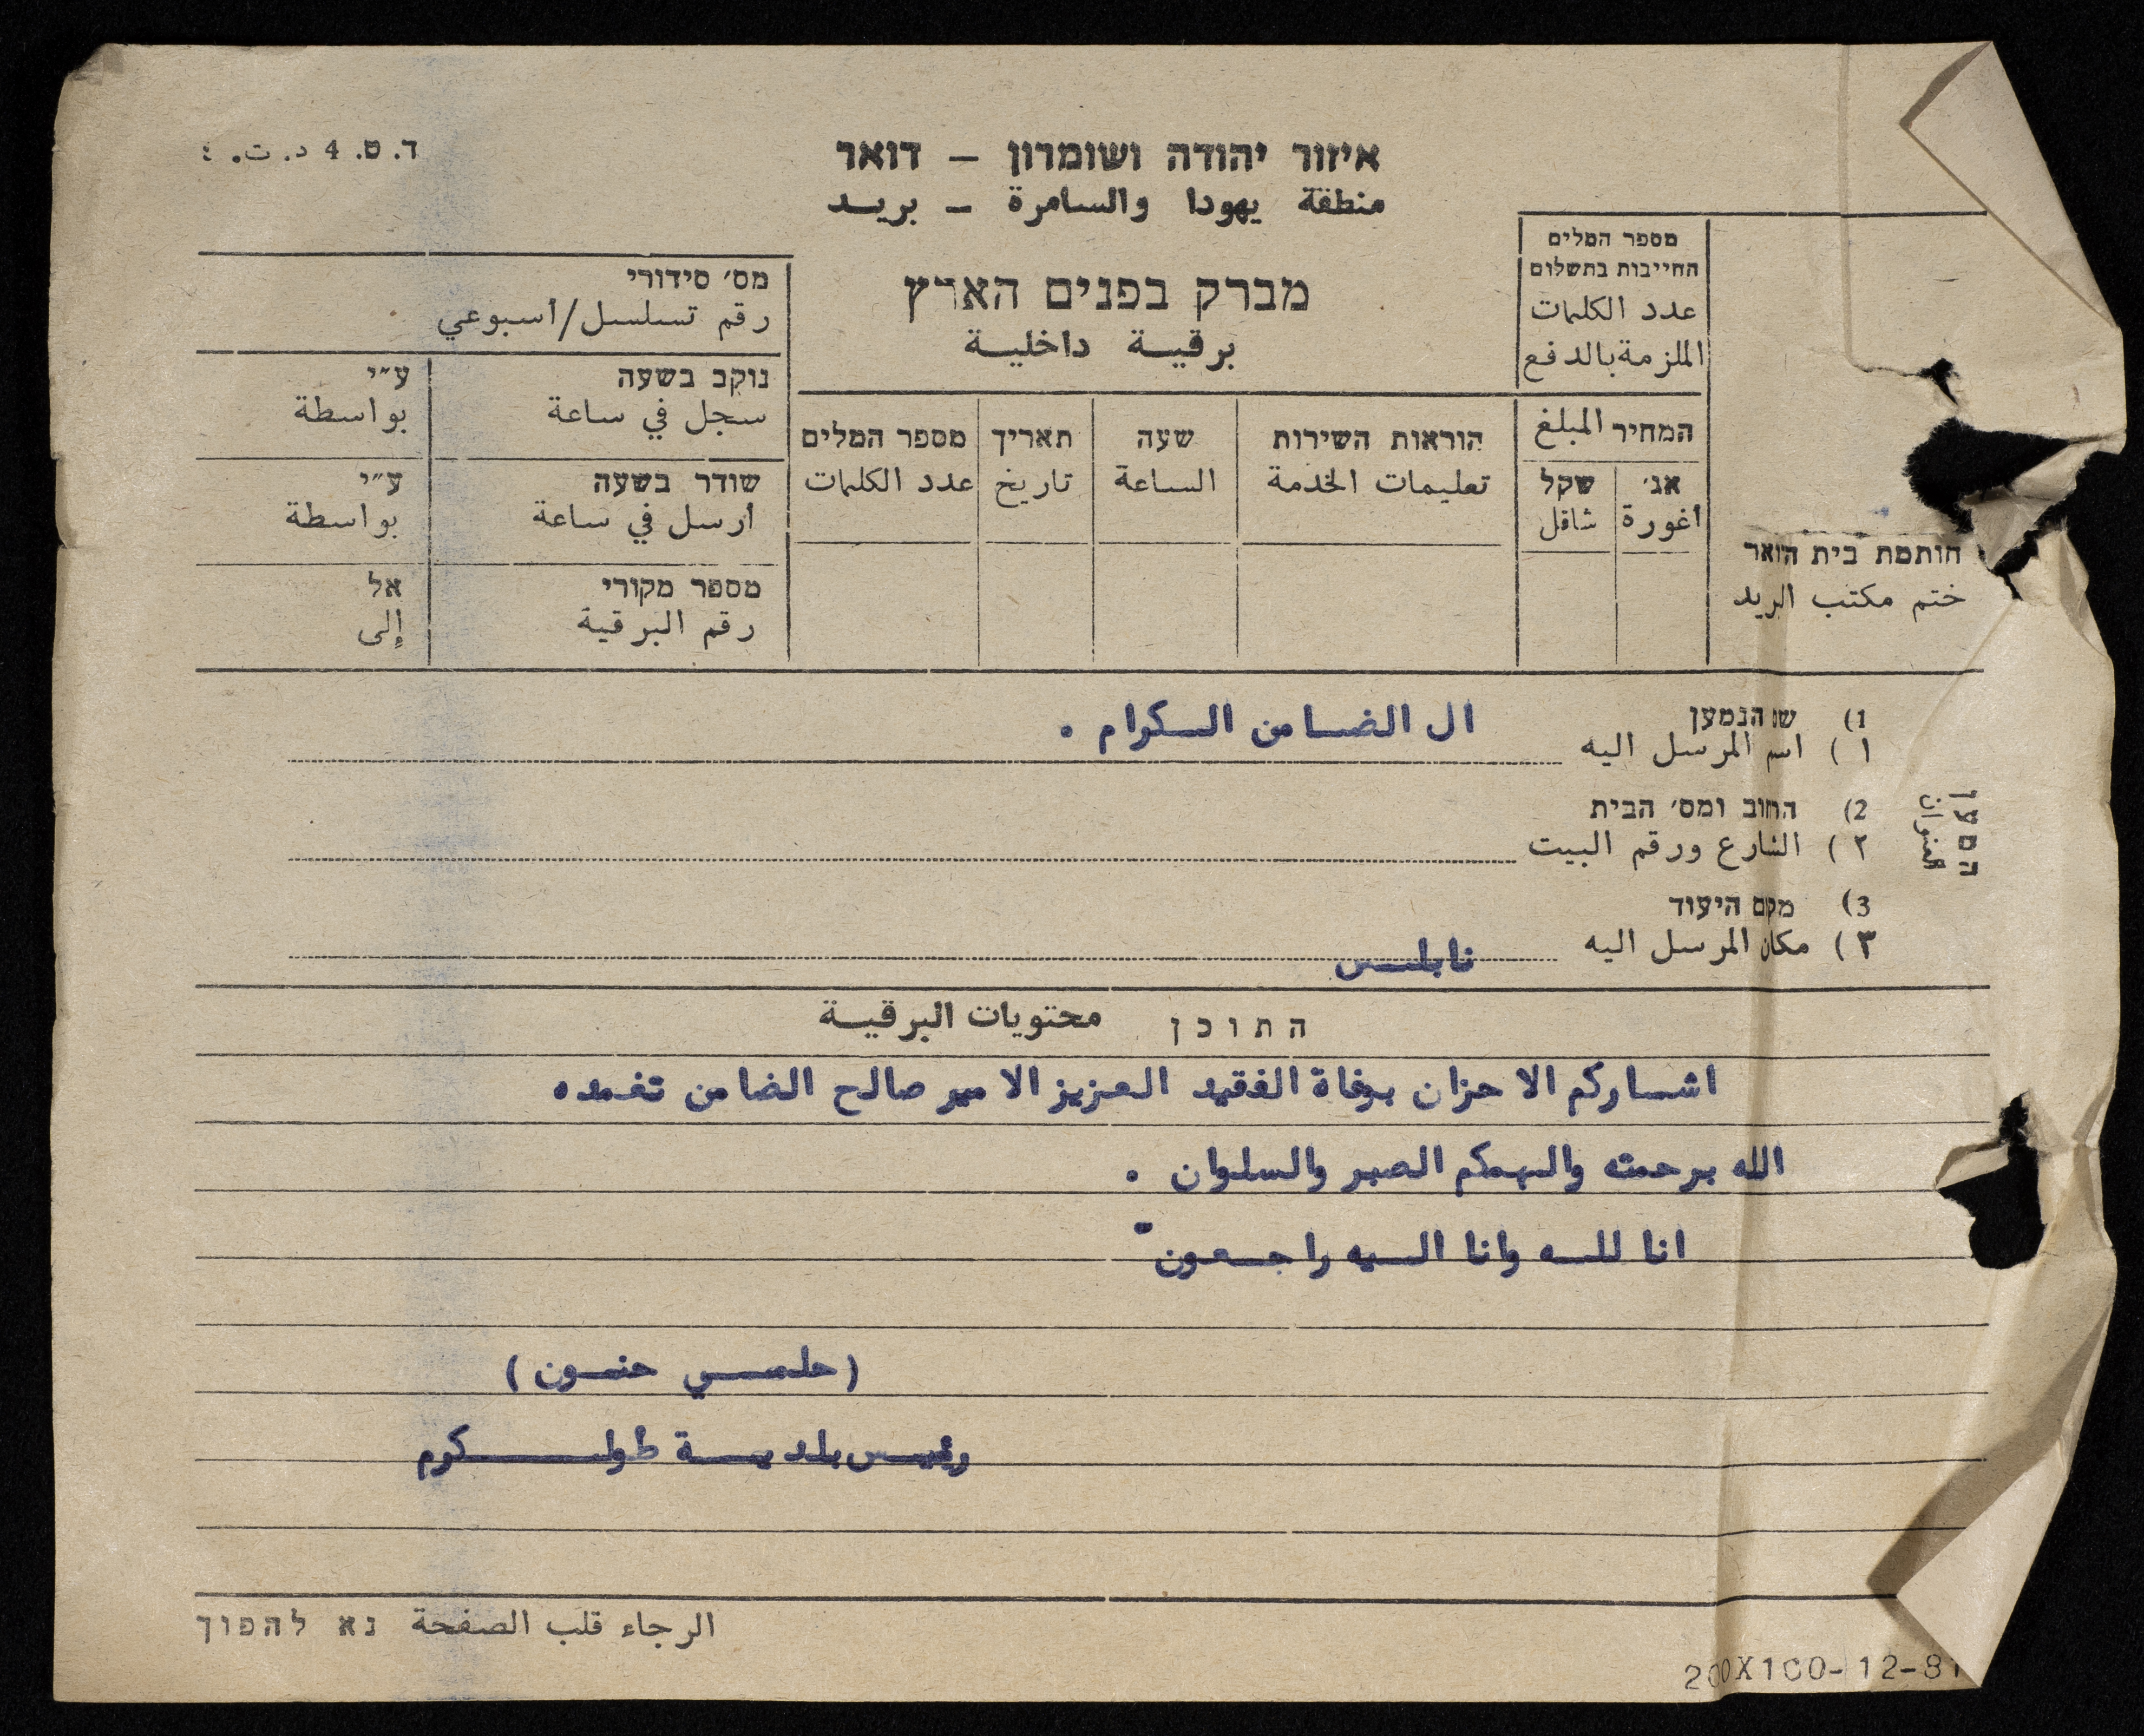 ד. ט. 4 د. ت. ٤
איזור יהודה ושומרון – דואר
منطقة يهودا والسامرة – بريد
מברק בפנים הארץ
برقية داخلية
מספר המלים
החייבות בתשלום
عدد الكلمات
الملزمة بالدفع
המחיר المبلغ
אג׳ שקל
أغورة شاقل
הוראות השירות
تعليمات الخدمة
שעה
الساعة
תאריך
تاريخ
מספר המלים
عدد الكلمات
מס׳ סידורי
رقم تسلسل/أسبوعي
נוקב בשעה ע״י
سجل في ساعة بواسطة
שודר בשעה ע״י
أرسل في ساعة بواسطة
מספר מקורי אל
رقم البرقية إلى
חותמת בית הואר
ختم مكتب البريد
המען
العنوان
1) שם הנמען
١) اسم المرسل اليه ال الضامن الكرام .
2) החוב ומס׳ הבית
٢) الشارع ورقم البيت
3) מקום היעוד
٣) مكان المرسل اليه نابلس
התוכן محتويات البرقية
اشاركم الاحزان بوفاة الفقيد العزيز الامير صالح الضامن تغمده
الله برحمته والهمكم الصبر والسلوان .
انا لله وانا اليه راجعون
(حلمي حنون)
رئيس بلدية طولكرم
الرجاء قلب الصفحة נא להפוך
200X100-12-81